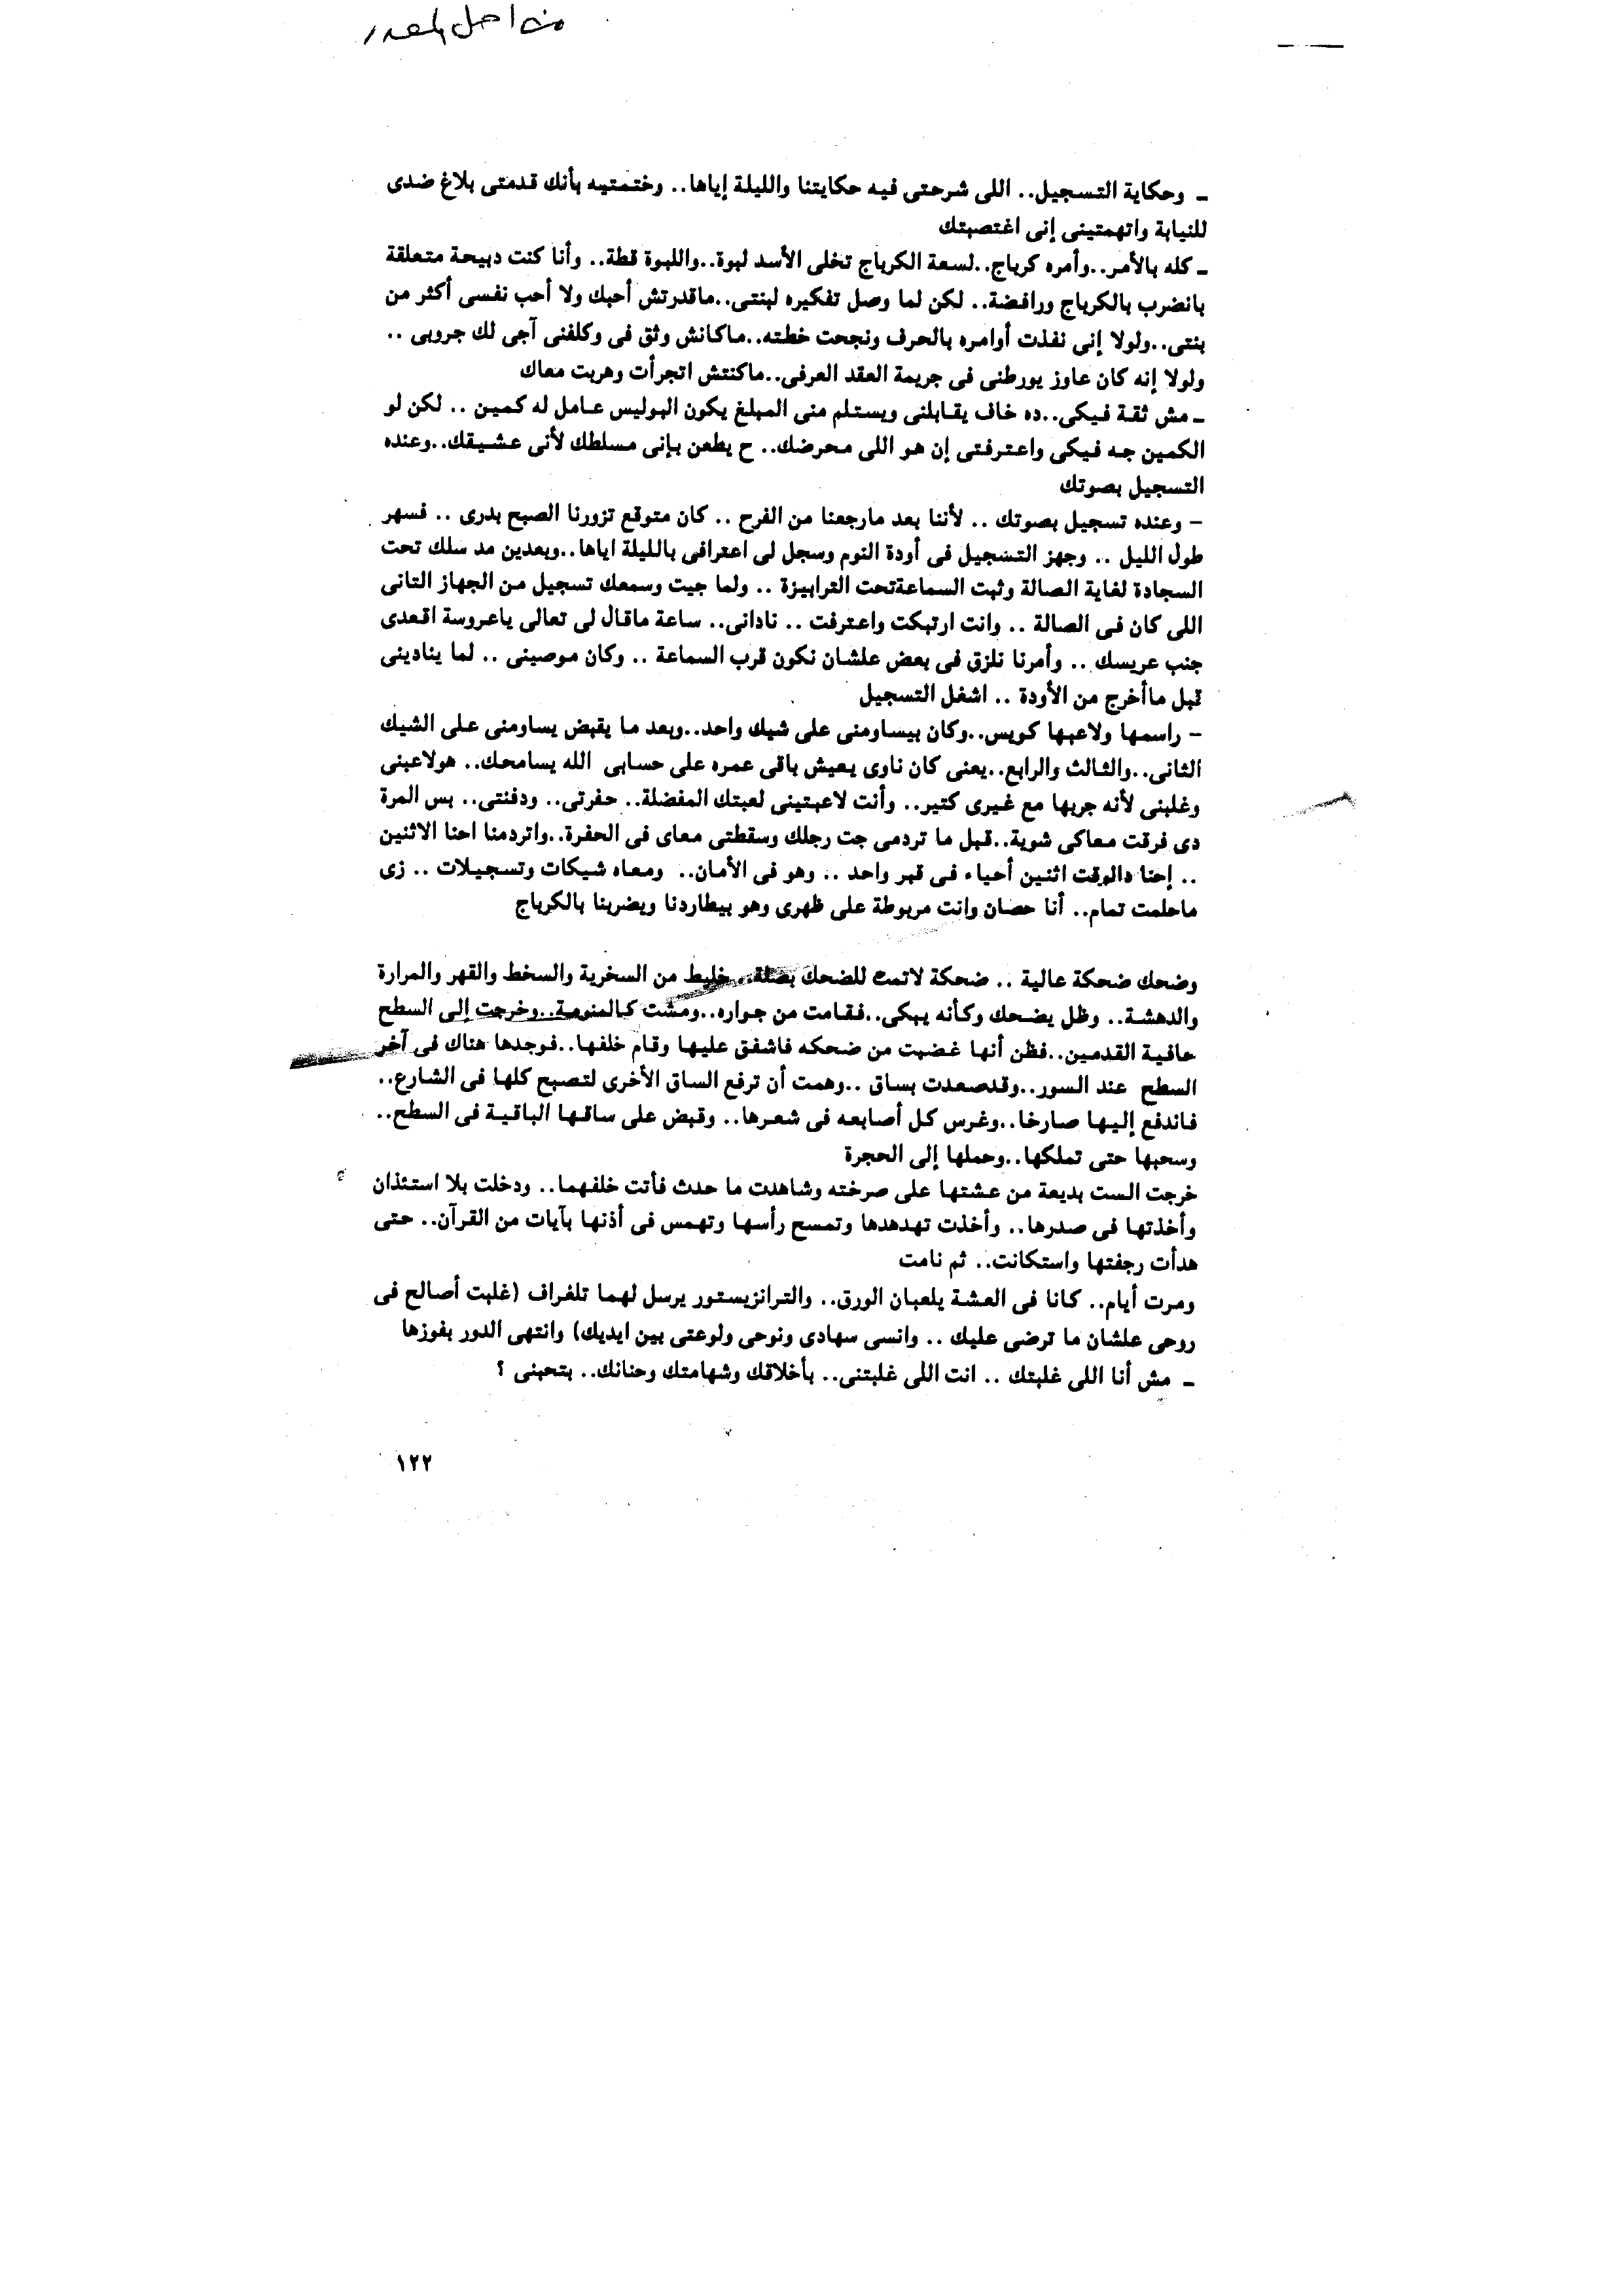 من اجل
ـ وحكاية التسجيل.. اللى شرحتى فيه حكايتنا والليلة إياها.. وختمتيه بأنك قدمتى بلاغ ضدى
للنيابة واتهمتينى إنى اغتصبتك
ـ كله بالأمر..وأمره كرباج..لسعة الكرباج تخلى الأسد لبوة..واللبوة قطة.. وأنا كنت دبيحة متعلقة
بانضرب بالكرباج ورافضة.. لكن لما وصل تفكيره لبنتى..ماقدرتش أحبك ولا أحب نفسى أكثر من
بنتى..ولولا إنى نفذت أوامره بالحرف ونجحت خطته..ماكانش وثق فى وكلفنى آجى لك جروبى ..
ولولا إنه كان عاوز يورطنى فى جريمة العقد العرفى..ماكنتش اتجرأت وهربت معاك
ـ مش ثقة فيكى..ده خاف يقابلنى ويستلم منى المبلغ يكون البوليس عامل له كمين .. لكن لو
الكمين جه فيكى واعترفتى إن هو اللى محرضك.. ح يطعن بإنى مسلطك لأنى عشيقك..وعنده
التسجيل بصوتك
– وعنده تسجيل بصوتك .. لأننا بعد مارجعنا من الفرح .. كان متوقع تزورنا الصبح بدرى .. فسهر
طول الليل .. وجهز التسجيل فى أودة النوم وسجل لى اعترافى بالليلة اياها..وبعدين مد سلك تحت
السجادة لغاية الصالة وثبت السماعةتحت الترابيزة .. ولما جيت وسمعك تسجيل من الجهاز التانى
اللى كان فى الصالة .. وانت ارتبكت واعترفت .. نادانى.. ساعة ماقال لى تعالى ياعروسة اقعدى
جنب عريسك .. وأمرنا نلزق فى بعض علشان نكون قرب السماعة .. وكان موصينى .. لما ينادينى
قبل ماأخرج من الأودة .. اشغل التسجيل
– راسمها ولاعبها كويس..وكان بيساومنى على شيك واحد..وبعد ما يقبض يساومنى على الشيك
الثانى..والثالث والرابع..يعنى كان ناوى يعيش باقى عمره على حسابى الله يسامحك.. هولاعبنى
وغلبنى لأنه جربها مع غيرى كتير.. وأنت لاعبتينى لعبتك المفضلة.. حفرتى.. ودفنتى.. بس المرة
دى فرقت معاكى شوية..قبل ما تردمى جت رجلك وسقطتى معاى فى الحفرة..واتردمنا احنا الاثنين
.. إحنا دالوقت اثنين أحياء فى قبر واحد .. وهو فى الأمان.. ومعاه شيكات وتسجيلات .. زى
ماحلمت تمام.. أنا حصان وانت مربوطة على ظهرى وهو بيطاردنا ويضربنا بالكرباج
وضحك ضحكة عالية .. ضحكة لاتمت للضحك بصلة.. خليط من السخرية والسخط والقهر والمرارة
والدهشة.. وظل يضحك وكأنه يبكى..فقامت من جواره..ومشت كالمنومة..وخرجت إلى السطح
حافية القدمين..فظن أنها غضبت من ضحكه فاشفق عليها وقام خلفها..فوجدها هناك فى آخر
السطح عند السور..وقدصعدت بساق ..وهمت أن ترفع الساق الأخرى لتصبح كلها فى الشارع..
فاندفع إليها صارخا..وغرس كل أصابعه فى شعرها.. وقبض على ساقها الباقية فى السطح..
وسحبها حتى تملكها..وحملها إلى الحجرة
خرجت الست بديعة من عشتها على صرخته وشاهدت ما حدث فأتت خلفهما.. ودخلت بلا استئذان
وأخذتها فى صدرها.. وأخذت تهدهدها وتمسح رأسها وتهمس فى أذنها بآيات من القرآن.. حتى
هدأت رجفتها واستكانت.. ثم نامت
ومرت أيام.. كانا فى العشة يلعبان الورق.. والترانزيستور يرسل لهما تلغراف (غلبت أصالح فى
روحى علشان ما ترضى عليك .. وانسى سهادى ونوحى ولوعتى بين ايديك) وانتهى الدور بفوزها
ـ مش أنا اللى غلبتك .. انت اللى غلبتنى.. بأخلاقك وشهامتك وحنانك.. بتحبنى ؟
١٢٢